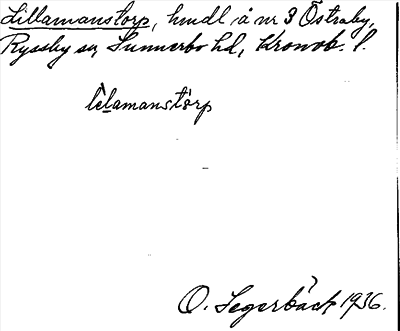 Lillamanstorp, hmdl å nr 3 Östraby,
Ryssby sn, Sunnerbo hd, Kronob. l.
lèlamanstòrp
O. Segerbäck 1936.